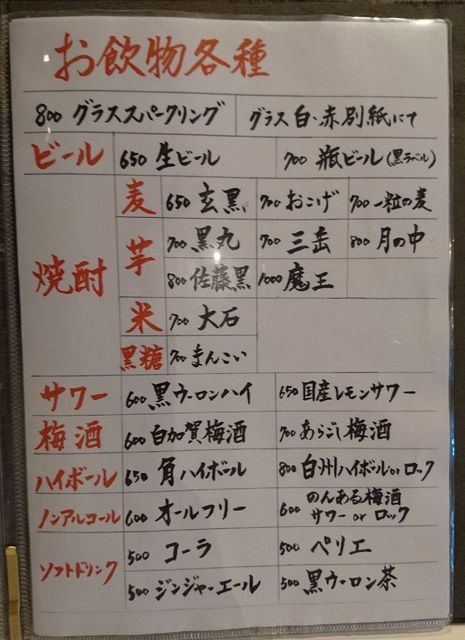 お飲物各種
800 グラススパークリング グラス白・赤別紙にて
ビール 650 生ビール 700 瓶ビール(黒ラベル)
焼酎
麦 650 玄黒 700 おこげ 700 一粒の麦
芋
700 黒丸 700 三岳 800 月の中
800 佐藤黒 1000 魔王
米 700 大石
黒糖 700 まんこい
サワー 600 黒ウーロンハイ 650 国産レモンサワー
梅酒 600 白加賀梅酒 700 あらごし梅酒
ハイボール 650 角ハイボール 800 白州ハイボール or ロック
ノンアルコール 600 オールフリー 600 のんある梅酒
サワー or ロック
ソフトドリンク
500 コーラ 500 ペリエ
500 ジンジャーエール 500 黒ウーロン茶